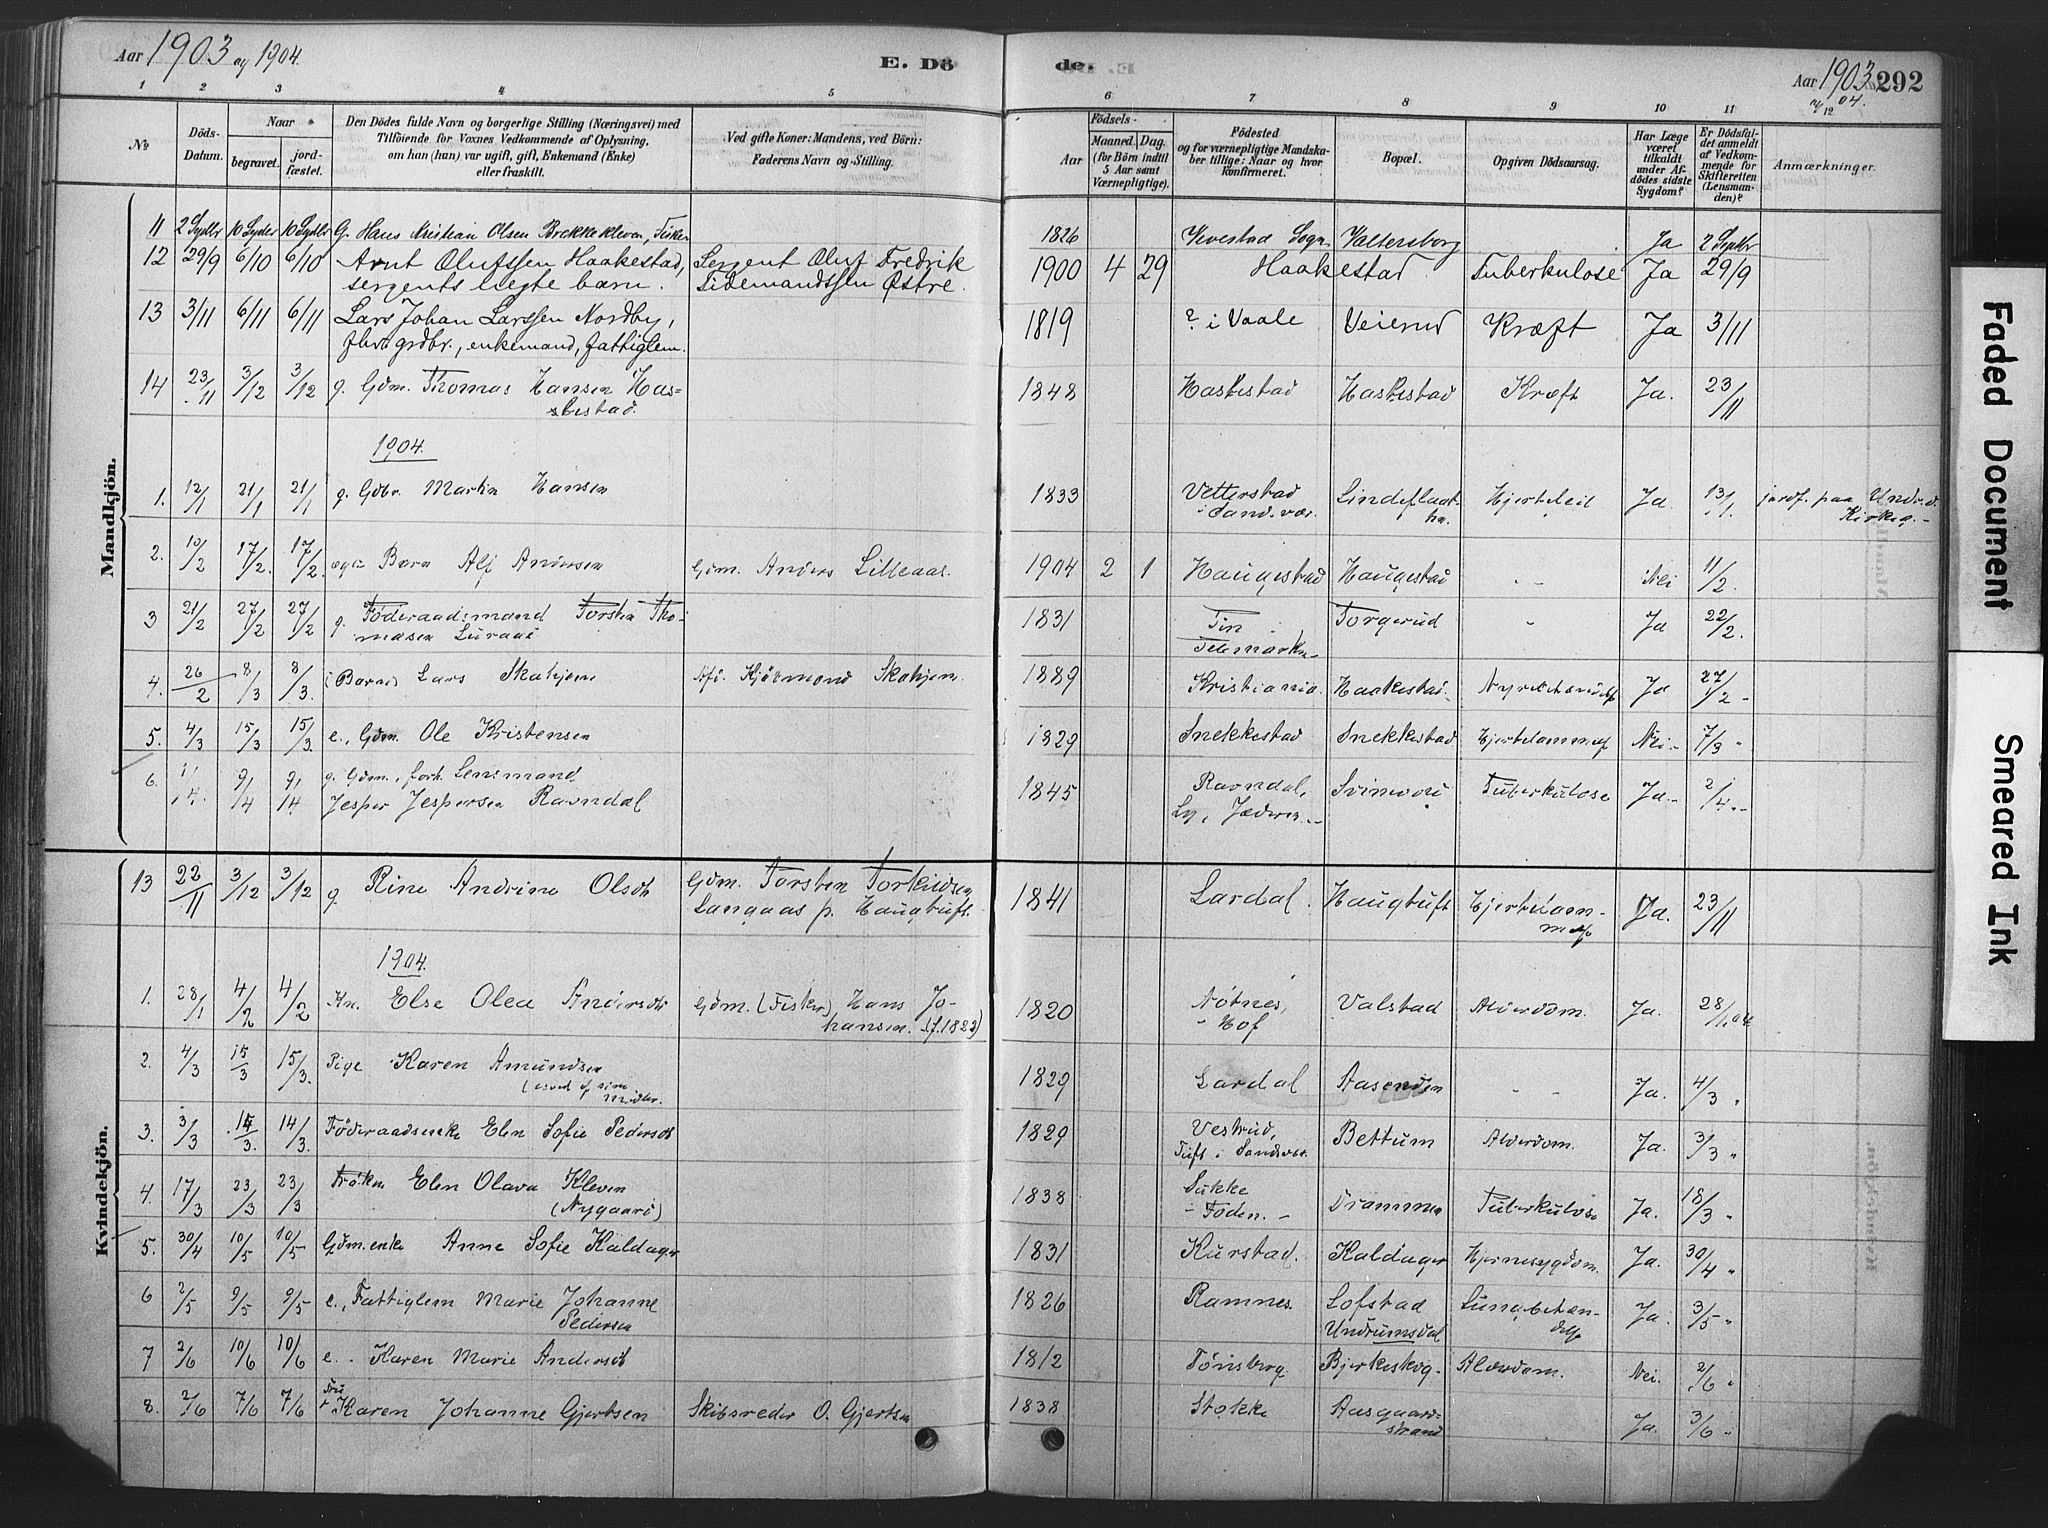 Aar 1903 og 1904.
E. Dö
de.
Aar 1903 292
04.
1 2 3 4 5 6 7 8 9 10 11
No
Döds-Datum.
Naar
begravet.
jord-fæstet.
Den Dödes fulde Navn og borgerlige Stilling (Næringsvei) med
Tilföiende for Voxnes Vedkommende af Oplysning,
om han (hun) var ugift, gift, Enkemand (Enke)
eller fraskilt.
Ved gifte Koner: Mandens, ved Börn:
Faderens Navn og Stilling.
Födsels-
Aar
Maaned. Dag.
(for Börn indtil
5 Aar samt
Værnepligtige).
Födested
og for værnepligtige Mandska-
ber tillige: Naar og hvor
konfirmeret.
Bopæl.
Opgiven Dödsaarsag.
Har Læge
været
tilkaldt
under Af-
dödes sidste
Sygdom?
Er Dödsfal-
det anmeldt
af Vedkom-
mende for
Skifteretten
(Lensman-
den)?
Anmærkninger.
Mandkjön.
11 2 Septbr 10 Septbr 10 Septbr G. Hans Kristian Olsen Brekkekleven, Fisker 1826 Sogn Valtersborg Ja 2 Septbr
12 29/9 6/10 6/10 Arnt Olufssen Haakestad, Sergent Oluf Fredrik 1900 4 29 Haakestad Tuberkulose Ja 29/9
sergents ægte barn. Sidemandssen Østre.
13 3/11 6/11 6/11 Lars Johan Larssen Nordby, 1819 ? i Vaale Veierud Kræft Ja 3/11
fhv. grdbr., enkemand, fattiglem.
14 23/11 3/12 3/12 g. Gdm. Thomas Hansen Has- 1848 Haskestad Haskestad Kræft Ja. 23/11
kestad.
1904.
1. 12/1 21/1 21/1 g. Gdbr. Martin Hansen 1833 Vetterstad Hjertefeil Ja. 13/1. jordf. paa
i Sandsvær. Kirkeg.
2. 10/2 17/2. 17/2. Barn Alf Andersen Gdm. Anders Lilleaas. 1904 2 1 Haugestad Haugestad - - Nei 11/2.
3 21/2 27/2 27/2 g. Föderaadsmand Torsten Tho- 1831 Tin Torgerud - Ja 22/2.
masen Luraas Telemarken
4. 26/2 8/3 8/3. Lars Skahjem Kjörmond Skahjem. 1889 Kristiania. Haakestad. Ja 27/2
5. 4/3 15/3 15/3 e., Gdm. Ole Kristensen 1829 Snekkestad Snekkestad Nei 7/3
6. 1/4. 9/4 9/4 g. Gdm., forh. Lensmand 1845 Ravndal, Svinevold Tuberkulose Ja. 2/4
Jesper Jespersen Ravndal Ly, Jæderen.
Kvindekjön.
13 22/11 3/12 3/12 g Rine Andrine Olsdtr Gdm. Torsten Torkildsen 1841 Lardal. Haugtuft Hjertelam- Ja. 23/11
Langaas p. Haugtuft. melse
1904.
1. 28/1 4/2 4/2 Kn. Else Olea Andersdtr Gdm. (Fisker) Hans Jo- 1820 Nøtnes, Valstad Alderdom. Ja. 28/1.04
hansen. (f. 1823) i Hof
2. 4/3 15/3 15/3. Pige Karen Amundsen 1829 Lardal Aasenden - - Ja. 4/3
3. 3/3 14/3. 14/3. Föderaadsenke Elen Sofie Pedersdtr 1829 Vestrud, Bettum Alderdom. Ja. 3/3
Tuft i Sandsvær.
4. 17/3 23/3 23/3 Frøken Elen Olava Kleven 1838 Sukke Drammen Tuberkulose Ja. 18/3
(Nygaard) i Foden.
5. 30/4 10/5 10/5 Gdm.enke Anne Sofie Kaldager 1831 Kurstad. Kaldager Hjernesygdom. Ja. 30/4
6 2/5 9/5 9/5 e., Fattiglem Marie Johanne 1826 Ramnes. Lofstad Lungebetæn- Ja. 3/5
Pedersen Undrumsdal delse
7 2/6 10/6 10/6 e. Karen Marie Andersdt 1812 Tønsberg Bjerkeskog. Alderdom. Nei. 2/6
8. 2/6 7/6 7/6 Fru Karen Johanne Gjertsen Skibsreder O. Gjertsen 1838 Stokke Aasgaard- Ja. 3/6
strand
Faded Document
Smeared Ink